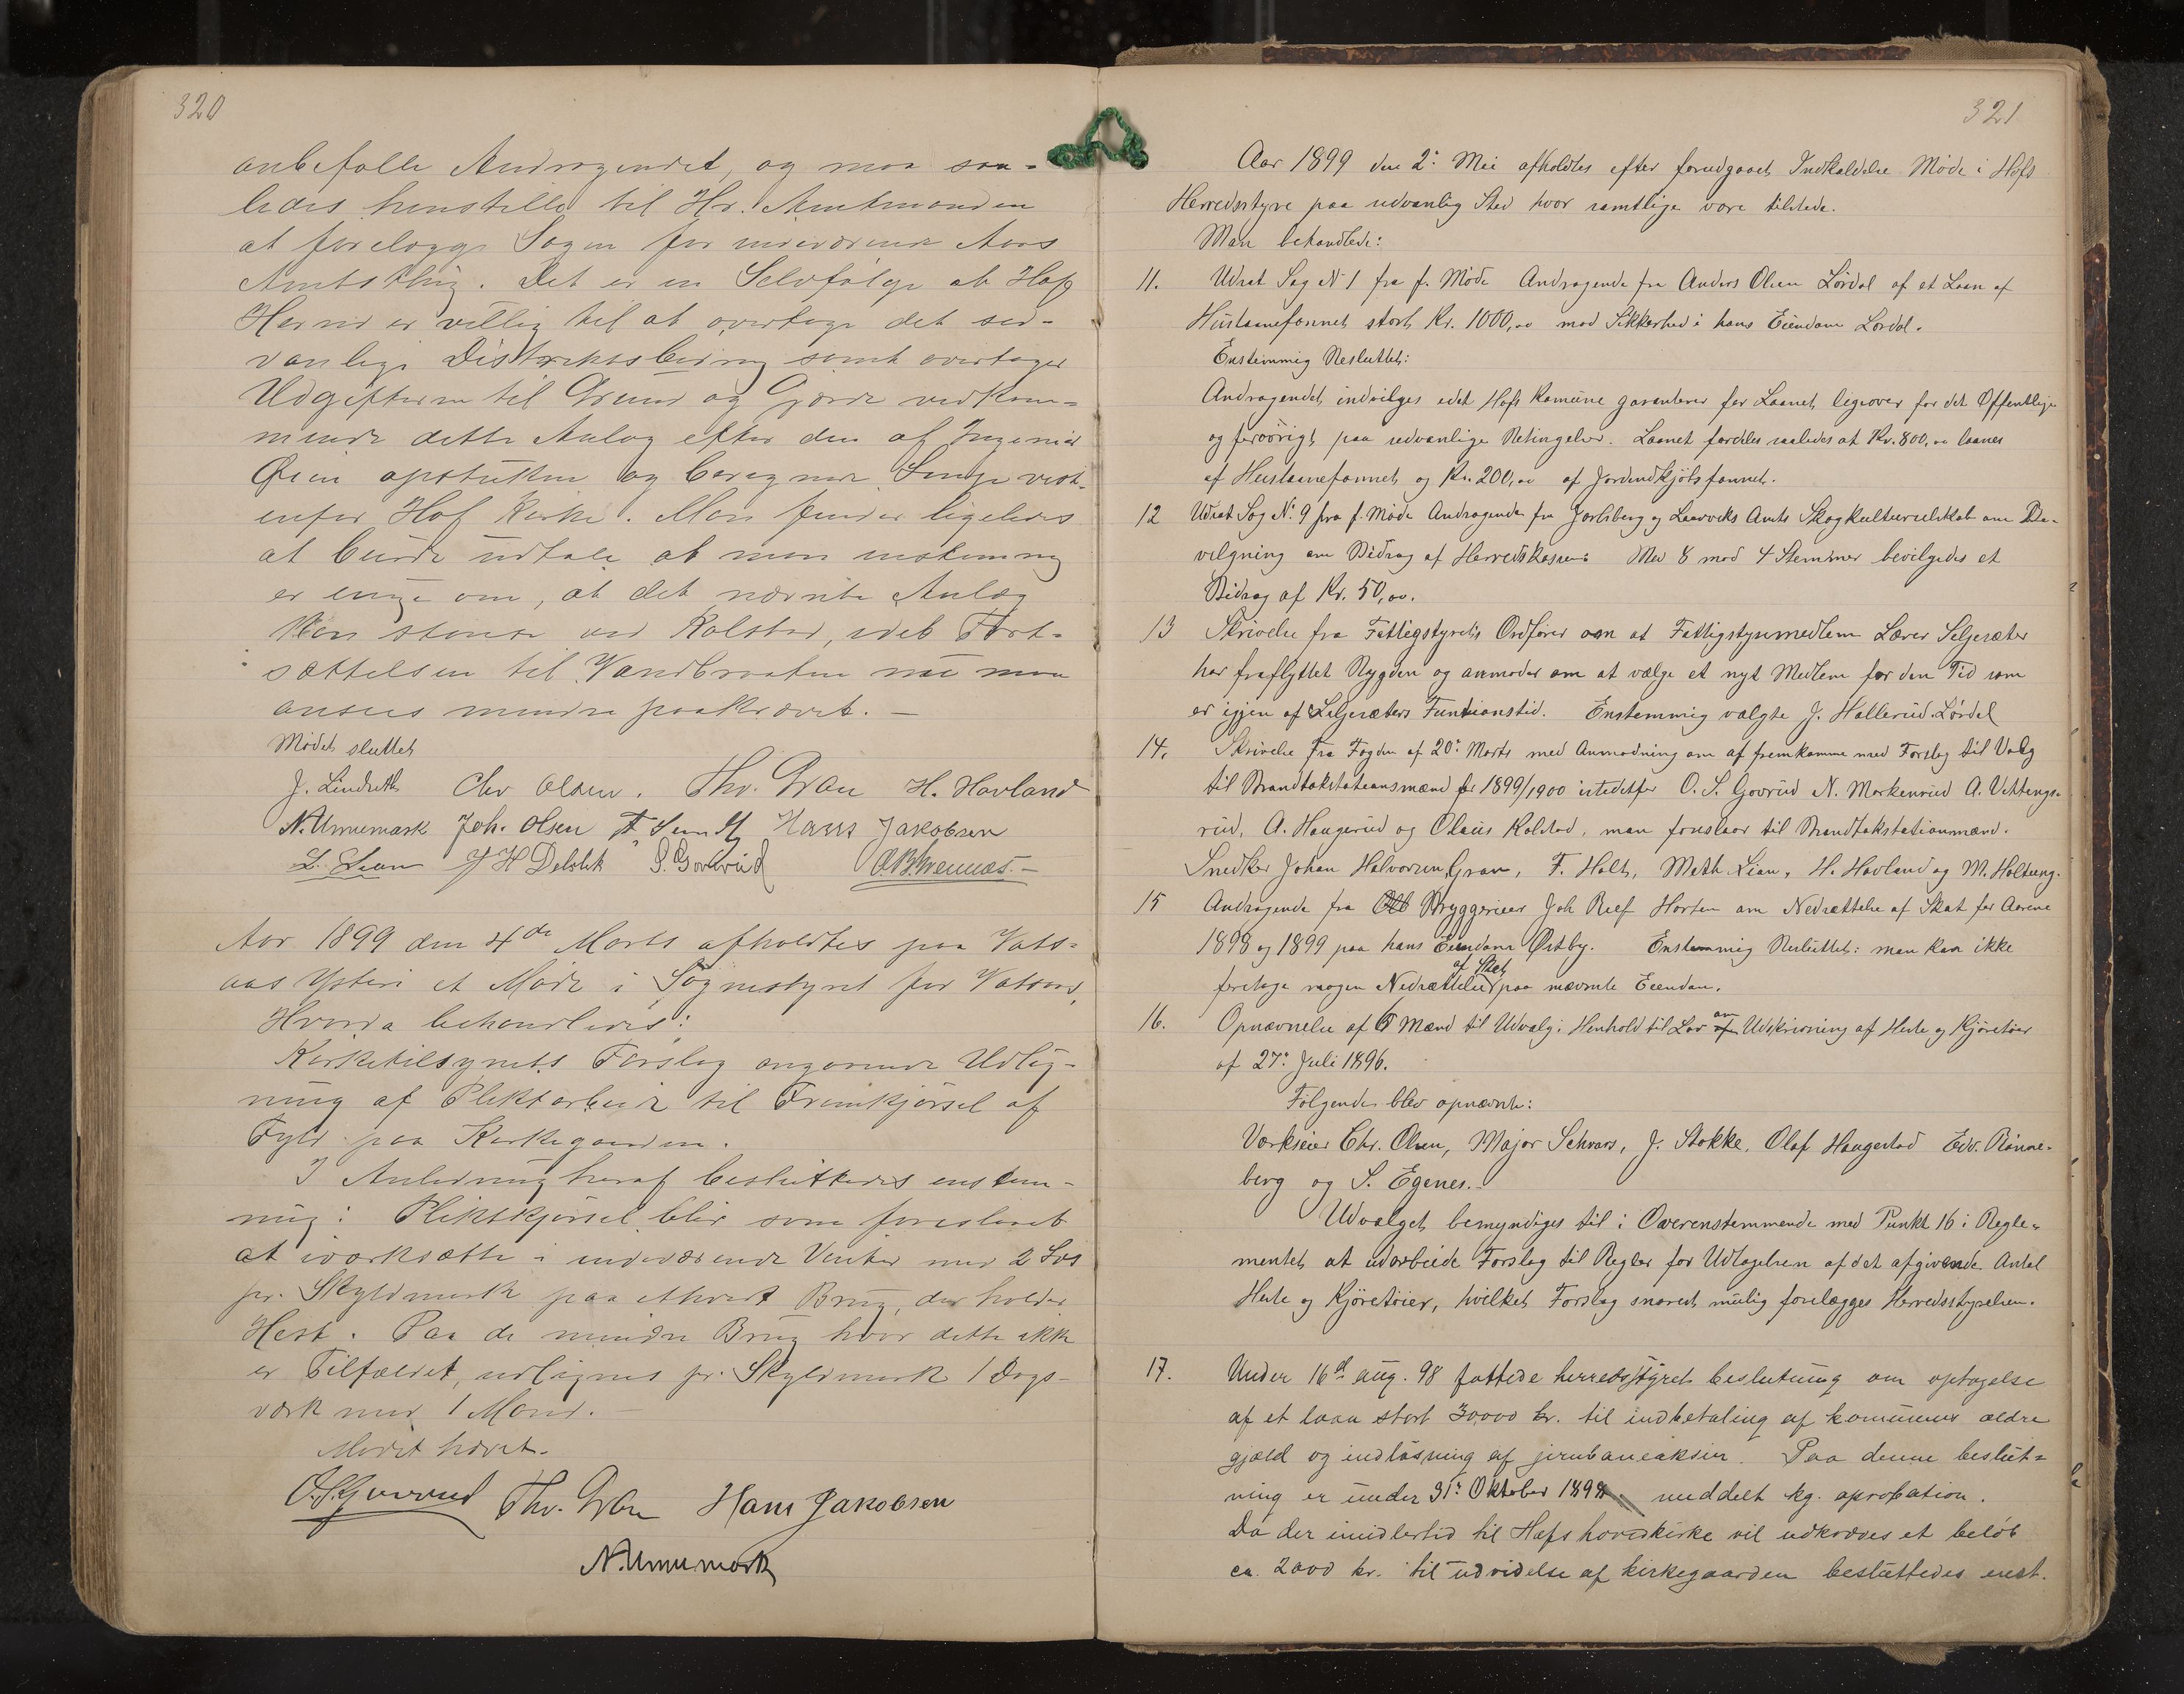 320
anbefalle Andragendet, og maa saa-
ledes henstille til Hr. Amtmanden
at forelægge Sagen for indeværende Aars
Amtsthing. Det er en Selvfølge at Hof
Herred er villig til at overtage det sed-
vanlige Distriktsbidrag samt overtager
Udgifterne til Grund og Gjærde vedkom-
mende dette Anlæg efter den af Ingeniør
opstukken og beregnede Linje vest-
enfor Hof Kirke. Man finder ligeledes
at burde udtale at man enstemmig
er enige om, at det nævnte Anlæg
kan stanse ved Kolstad, idet Fort-
sættelsen til Vandbraaten nu maa
ansees mindre paakrævet. —
Mødet sluttet
J. Lindseth Chr Olsen. Thv. Gran H. Havland
N. Unnemark Joh. Olsen F. Sundby Hans Jakobsen
L. Lian H Delebek S. Govlrud
Aar 1899 den 4de Marts afholdtes paa Vats-
aas Ysteri et Møde i Sognestyret for Vatsaas,
Hvorda behandledes:
Kirketilsynets Forslag angaaende Udlig-
ning af Pliktarbeide til Fremkjørsel af
Fyld paa Kirkegaarden.
I Anledning heraf besluttedes enstem-
mig: Pliktkjørsel blir som foreslaaet
at iværksætte i indeværende Vinter med 2 Læs
pr. Skyldmark paa ethvert Brug, der holder
Hest. Paa de mindre Brug hvor dette ikke
er Tilfældet, udlignes pr. Skyldmark 1 Dags-
værk med 1 Mand. —
Mødet hævet.
O. S. Govrud Thv. Gran Hans Jakobsen
N. Unnemark
321
Aar 1899 den 2: Mai afholdtes efter forudgaaet Indkaldelse Møde i Hofs
Herredsstyre paa sedvanlig Sted hvor samtlige vare tilstede.
Man behandlede:
11. Udsat Sag N 1 fra f. Møde Andragende fra Anders Olsen Lørdal af et Laan af
Huslaanefonnet stort Kr. 1000,00 mod Sikkerhed i hans Eiendom Lørdal.
Enstemmig Besluttet:
Andragendet indvilges idet Hofs Komune garanterer for Laanet ligeover for det Offentlige
og forøvrigt paa sedvanlige Betingelser. Laanet fordeles saaledes at Kr. 800,00 laanes
af Huslaanefonnet og Kr. 200,00 af Jordindkjøbsfonnet.
12 Udsat Sag N: 9 fra f. Møde Andragende fra Jarlsberg og Laurviks Amts Skogkulturselskab om Be-
vilgning om Bidrag af Herredskassen. Med 8 mod 4 Stemmer bevilgedes et
Bidrag af Kr. 50,00.
13 Skrivelse fra Fattigstyrets Ordfører om at Fattigstyremedlem Lærer Seljesæter
har fraflyttet Bygden og anmoder om at vælge et nyt Medlem for den Tid som
er igjen af Seljesæters Funktionstid. Enstemmig valgte J. Hallerud Lørdal
14. Skrivelse fra Fogden af 20: Marts med Anmodning om af fremkomme med Forslag til Valg
til Brandtakstationsmænd for 1899/1900 istedetfor O. S. Govrud N. Markenrud A. Vettengs-
rud, A. Haugerud og Olaus Kolstad, man foreslaar til Brandtakstationmænd.
Snedker Johan Halvorsen, Gran, F. Holt, Math. Lian, H. Havland og M. Holtung.
15 Andragende fra Bryggerieier Joh Reef Horten om Nedsættelse af Skat for Aarene
1898 og 1899 paa hans Eiendom Østby. Enstemmig Besluttet: man kan ikke
foretage nogen Nedsættelse af Skat paa nævnte Eiendom.
16. Opnævnelse af 6 Mænd til Udvalg i Henhold til Lov om Udskrivning af Heste og Kjøretøier
af 27: Juli 1896.
Følgende blev opnævnte:
Værkseier Chr. Olsen, Major Schwars, J. Stokke, Olaf Haugestad Edv. Rønne-
berg og S. Egenes.
Udvalget bemyndiges til i Overenstemmende med Punkt 16 i Regle-
mentet at udarbeide Forslag til Regler for Udtagelsen af det afgivende Antal
Heste og Kjøretøier, hvilket Forslag snarest mulig forelægges Herredsstyrelsen.
17. Under 16de aug. 98 fattede herredsstyret beslutning om optagelse
af et laan stort 30,000 kr. til indbetaling af komunens ældre
gjæld og indløsning af jernbaneaksier. Paa denne beslut-
ning er under 31: Oktober 1898 meddelt kg. aprobation.
Da der imidlertid til Hofs hovedkirke vil udkræves et beløb
ca. 2000 kr. til udvidelse af kirkegaarden besluttedes enst.